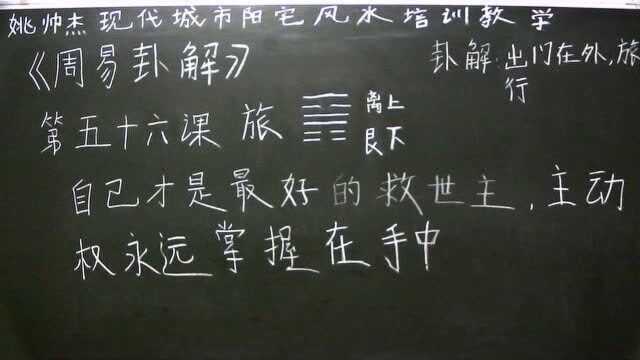 姚帅杰现代城市阳宅风水培训教学
《周易卦解》
卦解:出门在外,旅
行
第五十六课 旅 离上
艮下
自己才是最好的救世主,主动
权永远掌握在手中